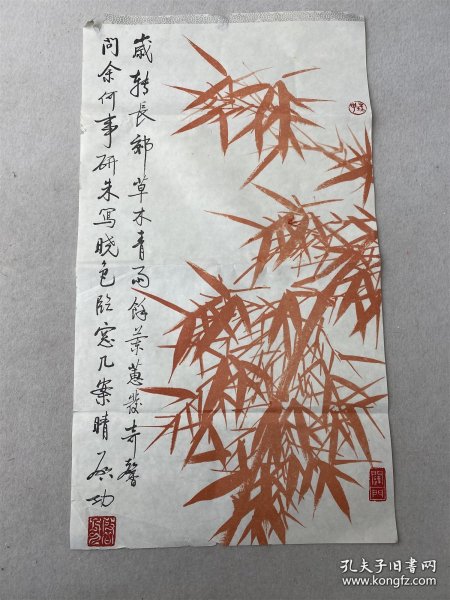 歲转長郊草木青雨餘蘭蕙發奇馨
问余何事研朱寫晓色临窓几案晴 启功
孔夫子旧书网
www.kongfz.com